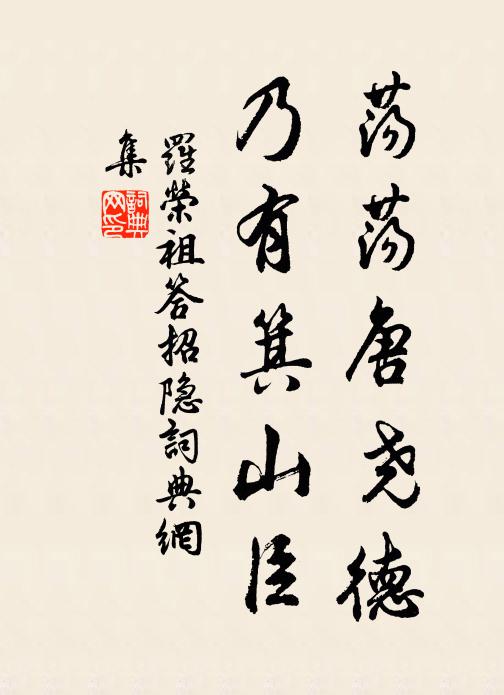 荡荡唐尧德
乃有箕山臣
羅榮祖答招隐詞典網
集
詞典
网印